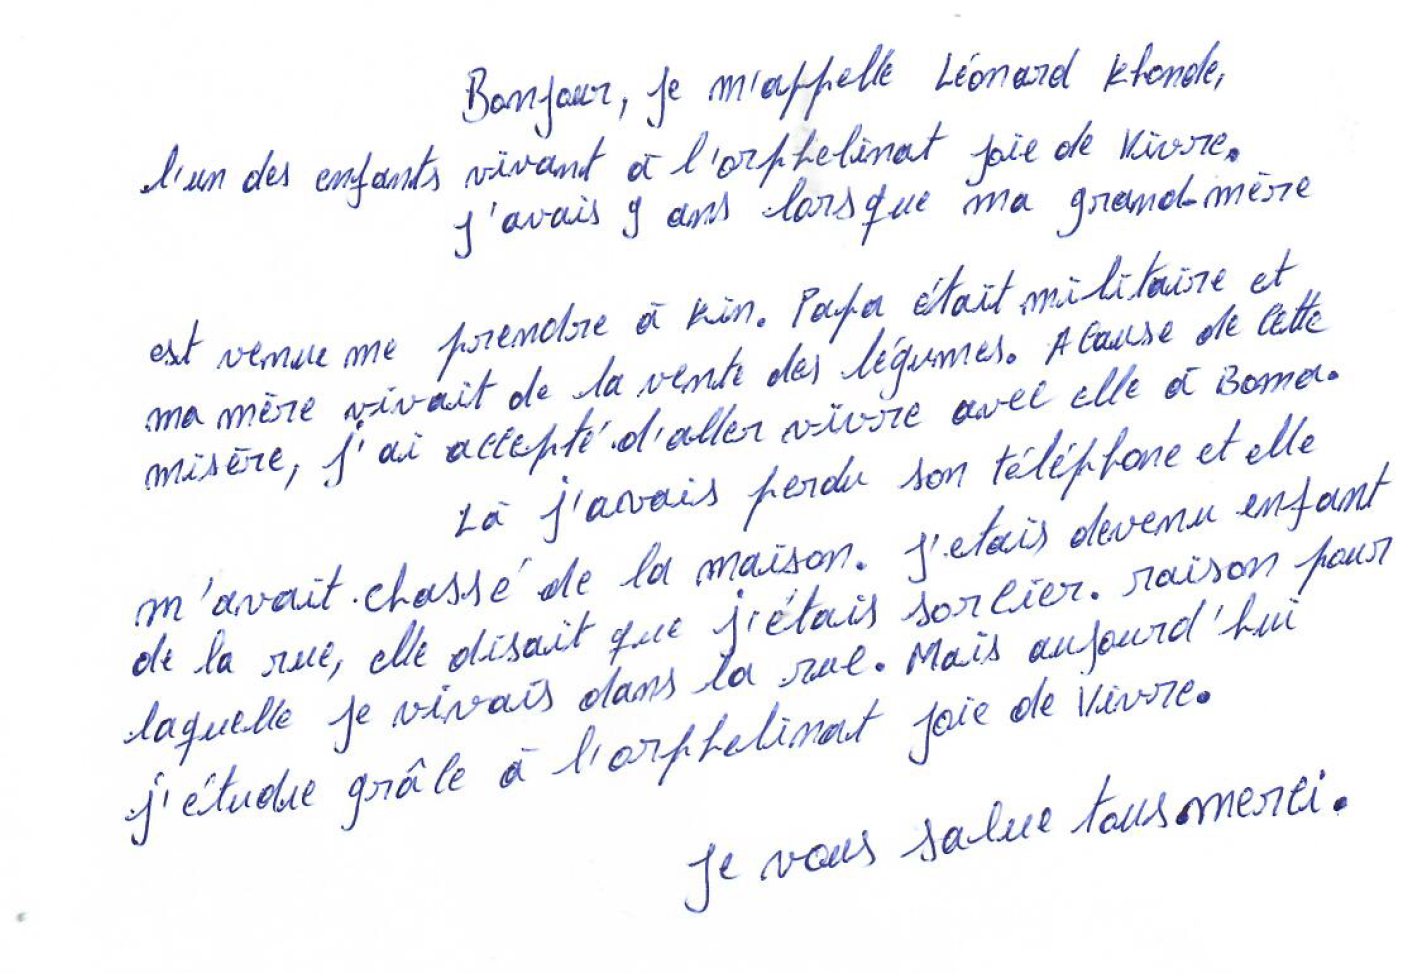 Bonjour, je m'appelle Léonard Khonde,
l'un des enfants vivant à l'orphelinat joie de Vivre.
J'avais 9 ans lorsque ma grand-mère
est venue me prendre à Kin. Papa était militaire et
ma mère vivait de la vente des légumes. A cause de cette
misère, j'ai accepté d'aller vivre avec elle à Boma.
Là j'avais perdu son téléphone et elle
m'avait chassé de la maison. J'etais devenu enfant
de la rue, elle disait que j'étais sorcier. raison pour
laquelle je vivais dans la rue. Mais aujourd'hui
j'étudie grâce à l'orphelinat joie de Vivre.
Je vous salue tous. merci.